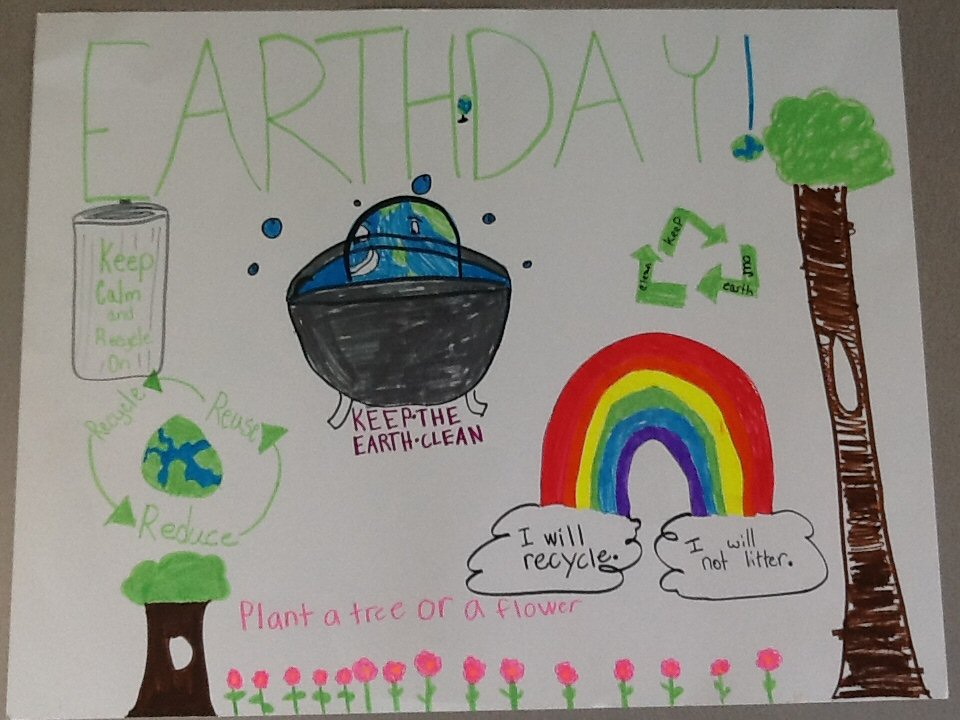 EARTHDAY!
Keep
Calm
and
Recycle
On!!
clean
keep
our
earth
KEEP·THE
EARTH·CLEAN
Recycle
Reuse
Reduce
I will
recycle.
I will
not litter.
Plant a tree or a flower